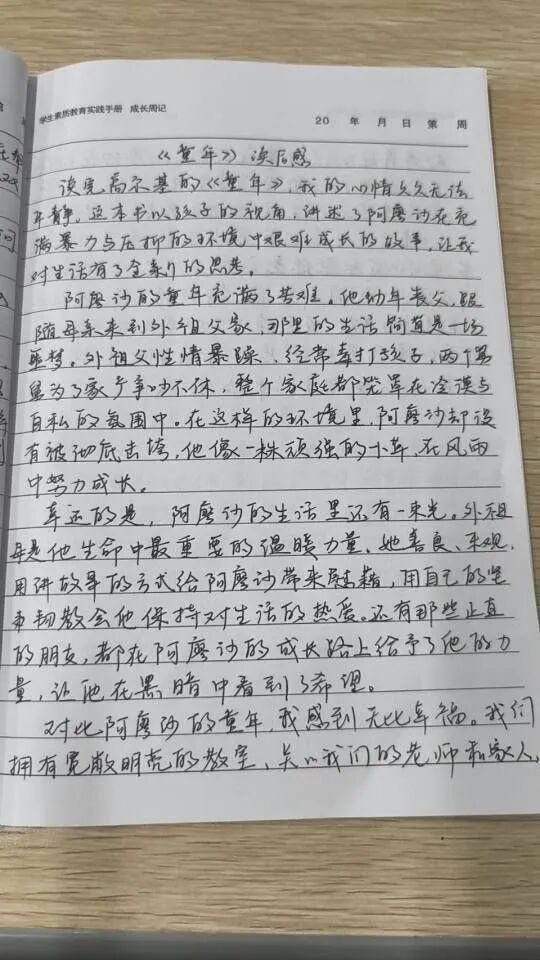 学生素质教育实践手册 成长周记
20 年 月 日 第 周
《童年》读后感
读完高尔基的《童年》，我的心情久久无法
平静。这本书以孩子的视角，讲述了阿廖沙在充
满暴力与压抑的环境中艰难成长的故事，让我
对生活有了全新的思考。
阿廖沙的童年充满了苦难。他幼年丧父，跟
随母亲来到外祖父家，那里的生活简直是一场
噩梦。外祖父性情暴躁，经常毒打孩子，两个舅
舅为了家产争吵不休，整个家庭都笼罩在冷漠与
自私的氛围中。在这样的环境里，阿廖沙却没
有被彻底击垮，他像一株顽强的小草，在风雨
中努力成长。
幸运的是，阿廖沙的生活里还有一束光。外祖
母是他生命中最重要的温暖力量，她善良、乐观，
用讲故事的方式给阿廖沙带来慰藉，用自己的坚
韧教会他保持对生活的热爱。还有那些正直
的朋友，都在阿廖沙的成长路上给予了他的力
量，让他在黑暗中看到了希望。
对比阿廖沙的童年，我感到无比幸福。我们
拥有宽敞明亮的教室、关心我们的老师和家人，